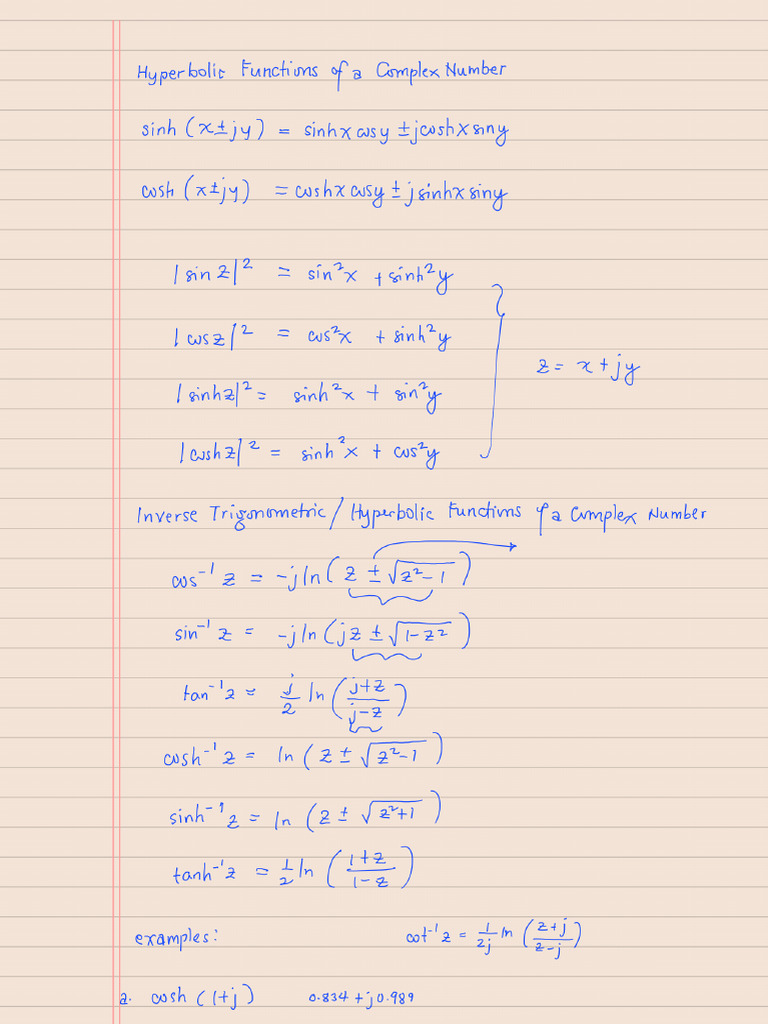 Hyperbolic Functions of a Complex Number
sinh (x ± jy) = sinhx cosy ± jcoshx siny
cosh (x ± jy) = coshx cosy ± j sinhx siny
|sin z|² = sin²x + sinh²y
|cos z|² = cos²x + sinh²y
z = x + jy
|sinhz|² = sinh²x + sin²y
|coshz|² = sinh²x + cos²y
Inverse Trigonometric / Hyperbolic Functions of a Complex Number
cos⁻¹ z = -j ln (z ± √(z²-1))
sin⁻¹ z = -j ln (jz ± √(1-z²))
tan⁻¹z = j/2 ln ((j+z)/(j-z))
cosh⁻¹ z = ln (z ± √(z²-1))
sinh⁻¹ z = ln (z ± √(z²+1))
tanh⁻¹z = 1/2 ln ((1+z)/(1-z))
examples: cot⁻¹ z = 1/2j ln ((z+j)/(z-j))
a. cosh (1+j) 0.834 + j0.989